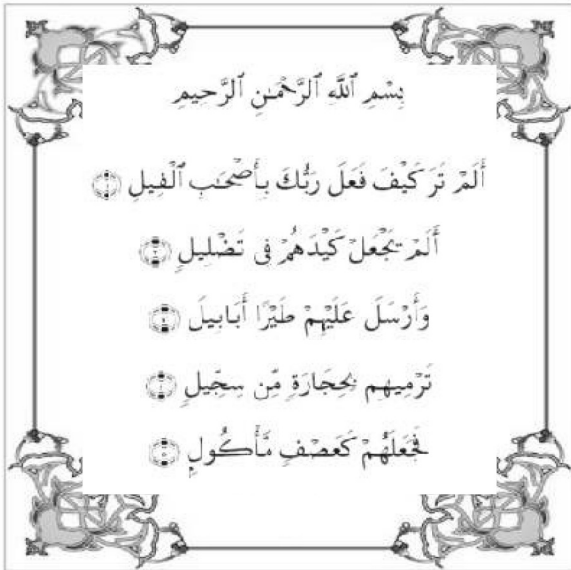 بِسْمِ ٱللَّهِ ٱلرَّحْمَـٰنِ ٱلرَّحِيمِ
أَلَمْ تَرَ كَيْفَ فَعَلَ رَبُّكَ بِأَصْحَـٰبِ ٱلْفِيلِ ١
أَلَمْ يَجْعَلْ كَيْدَهُمْ فِى تَضْلِيلٍ ٢
وَأَرْسَلَ عَلَيْهِمْ طَيْرًا أَبَابِيلَ ٣
تَرْمِيهِم بِحِجَارَةٍ مِّن سِجِّيلٍ ٤
فَجَعَلَهُمْ كَعَصْفٍ مَّأْكُولٍۭ ٥